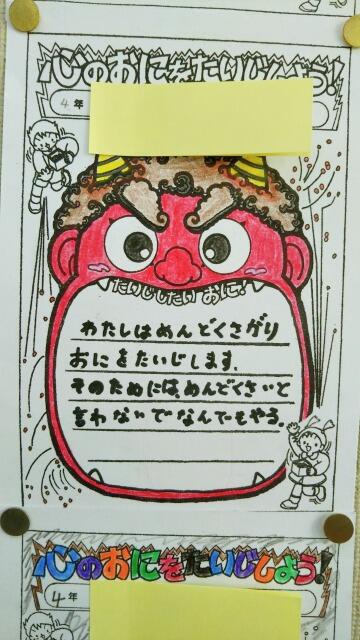 心のおにをたいじしよう!
4年
たいじしたい おに!
わたしはめんどくさがり
おにをたいじします。
そのためには、めんどくさいと
言わないでなんでもやる。
心のおにをたいじしよう!
4年